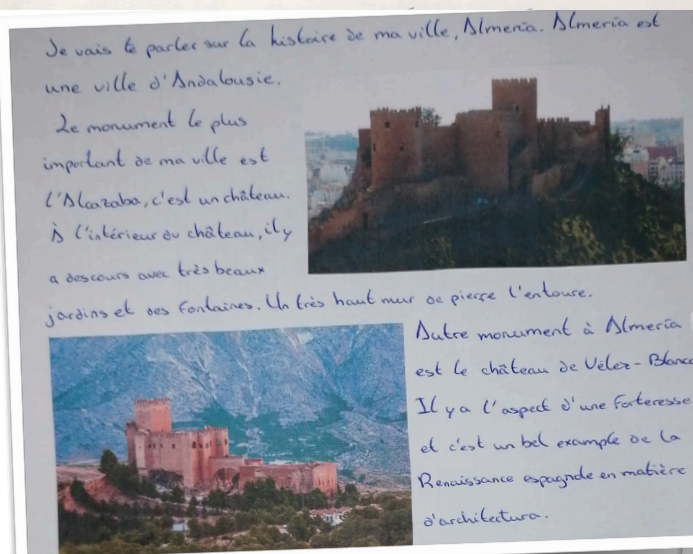 Je vais te parler sur la histoire de ma ville, Almería. Almería est
une ville d'Andalousie.
Le monument le plus
important de ma ville est
l'Alcazaba, c'est un château.
À l'intérieur du château, il y
a des cours avec très beaux
jardins et des fontaines. Un très haut mur de pierre l'entoure.
Autre monument à Almería
est le château de Vélez-Blanco
Il y a l'aspect d'une forteresse
et c'est un bel example de la
Renaissance espagnole en matière
d'architectura.